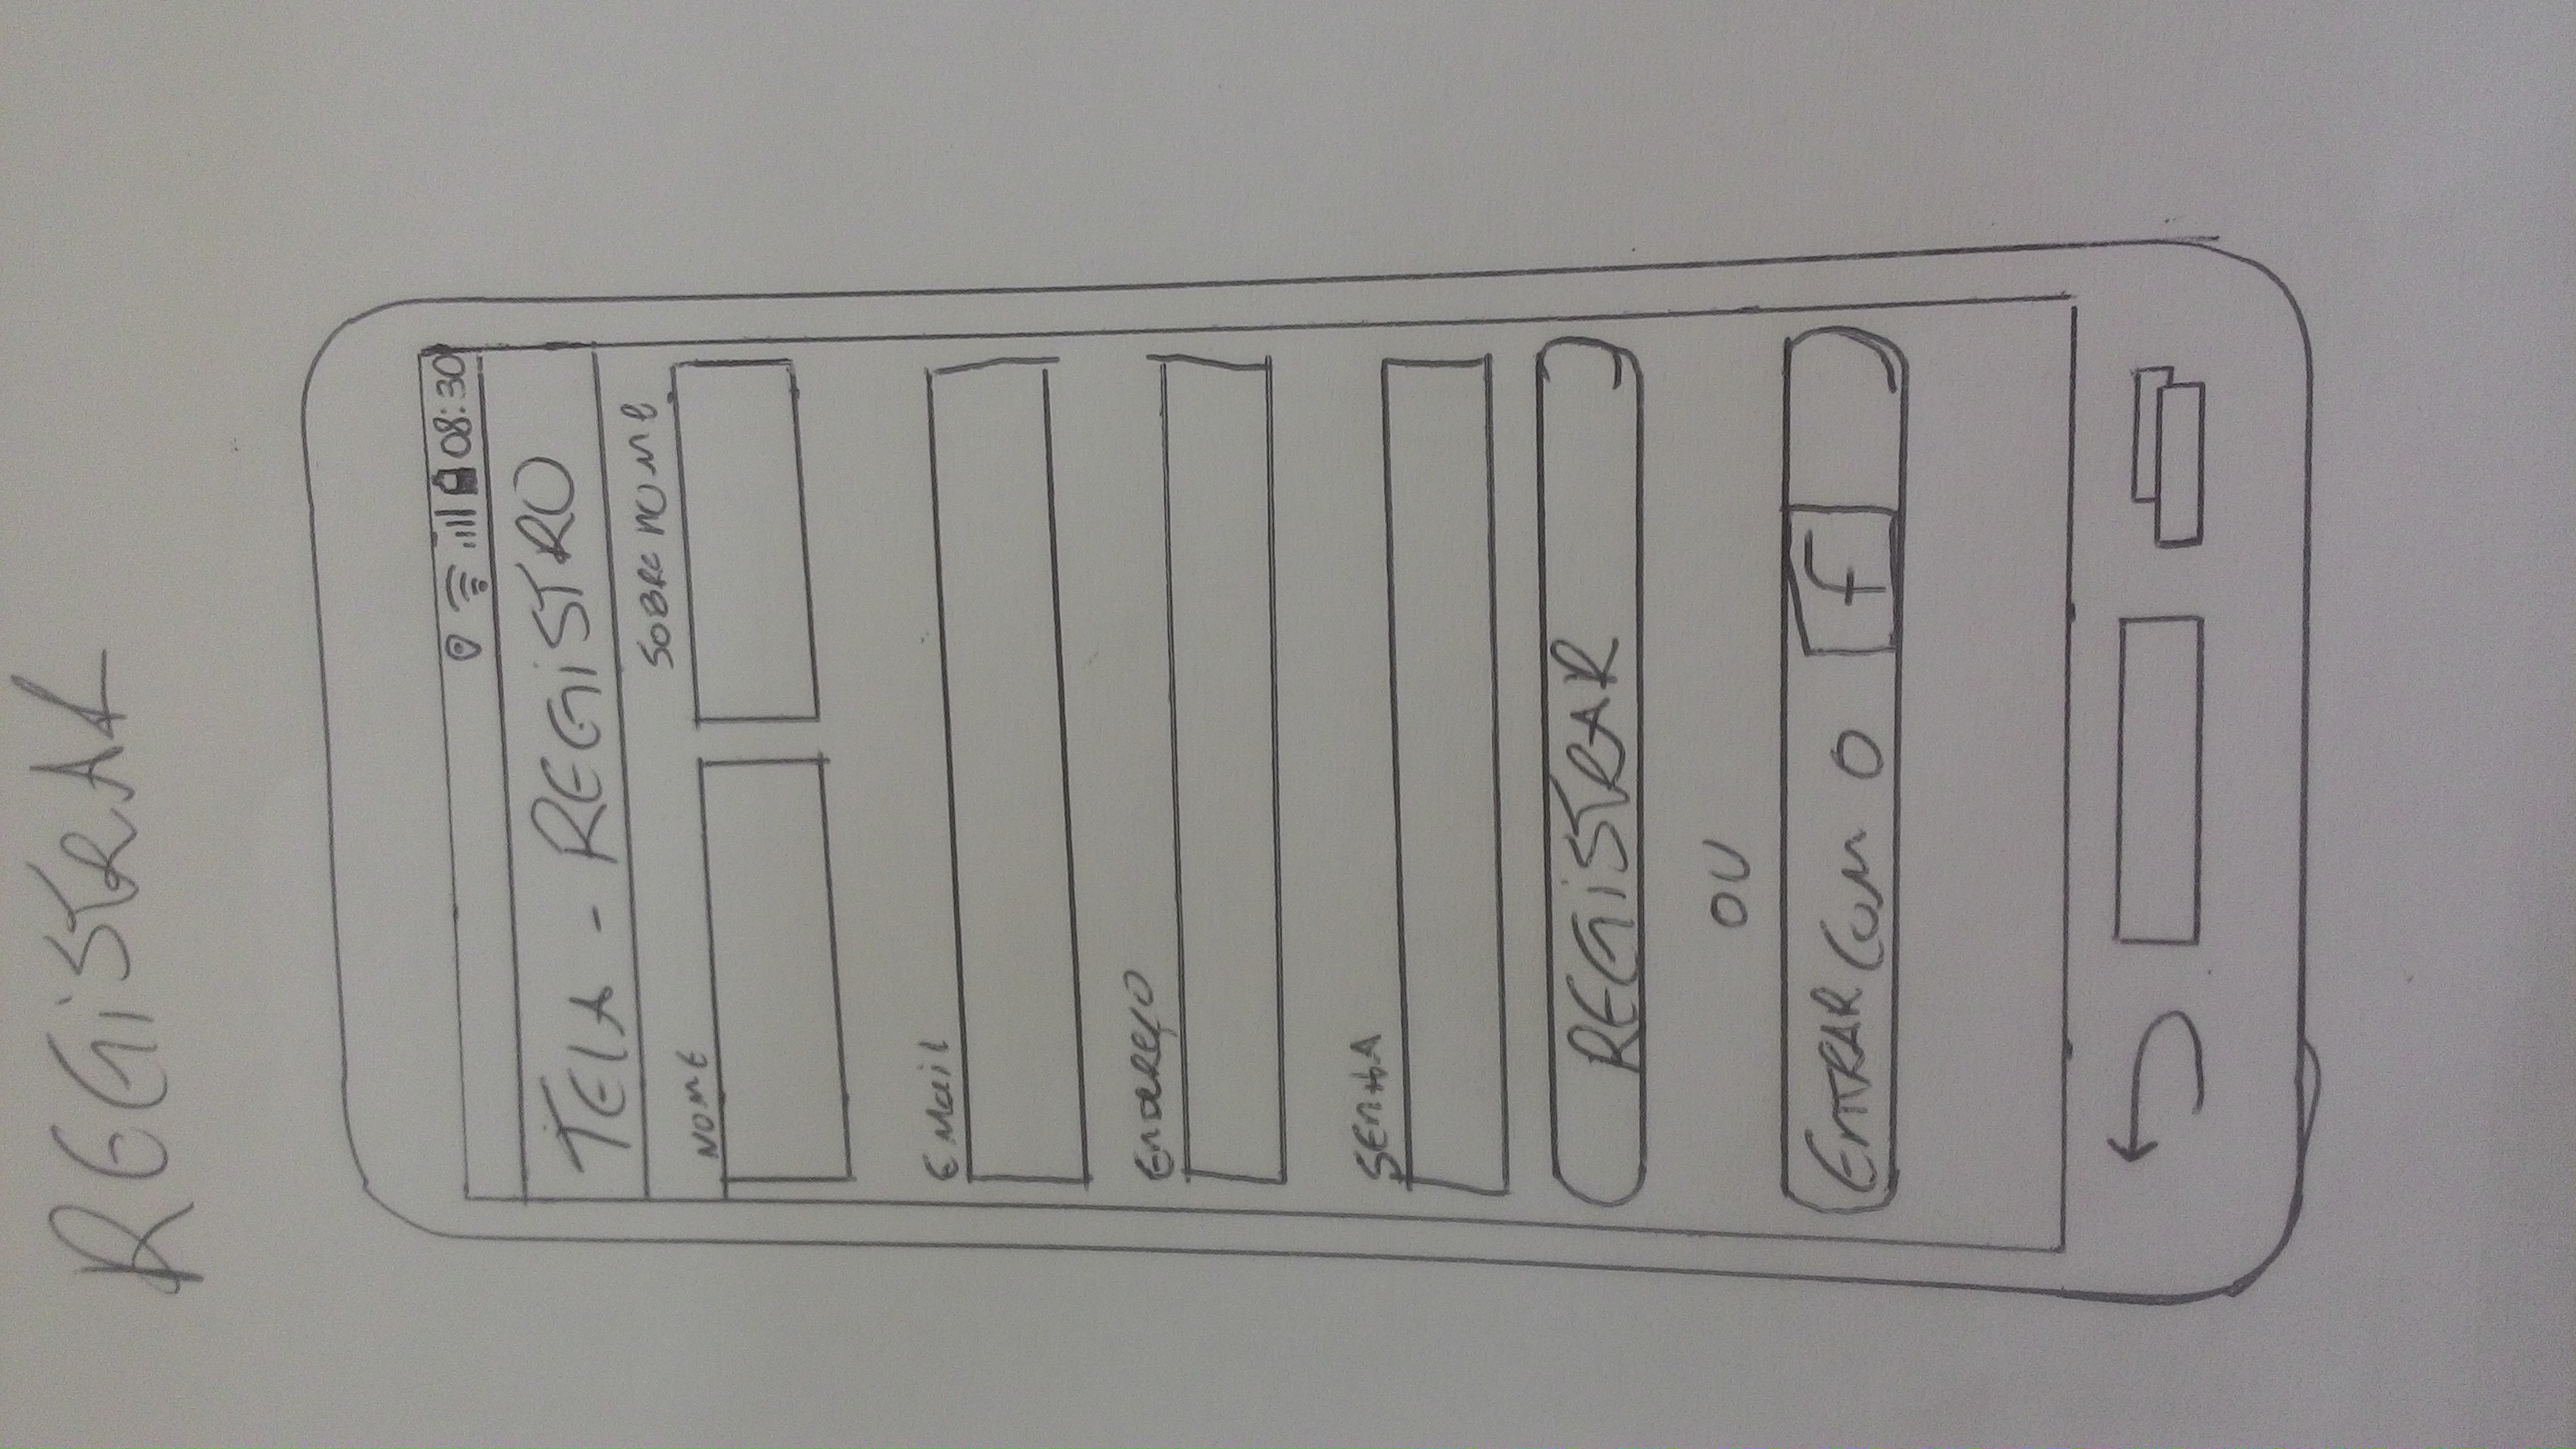 REGiSTRAR
08:30
TELA - REGiSTRO
NOME SOBRE NOME
EMail
ENDEREÇO
SENHA
REGiSTRAR
OU
ENTRAR COM O f